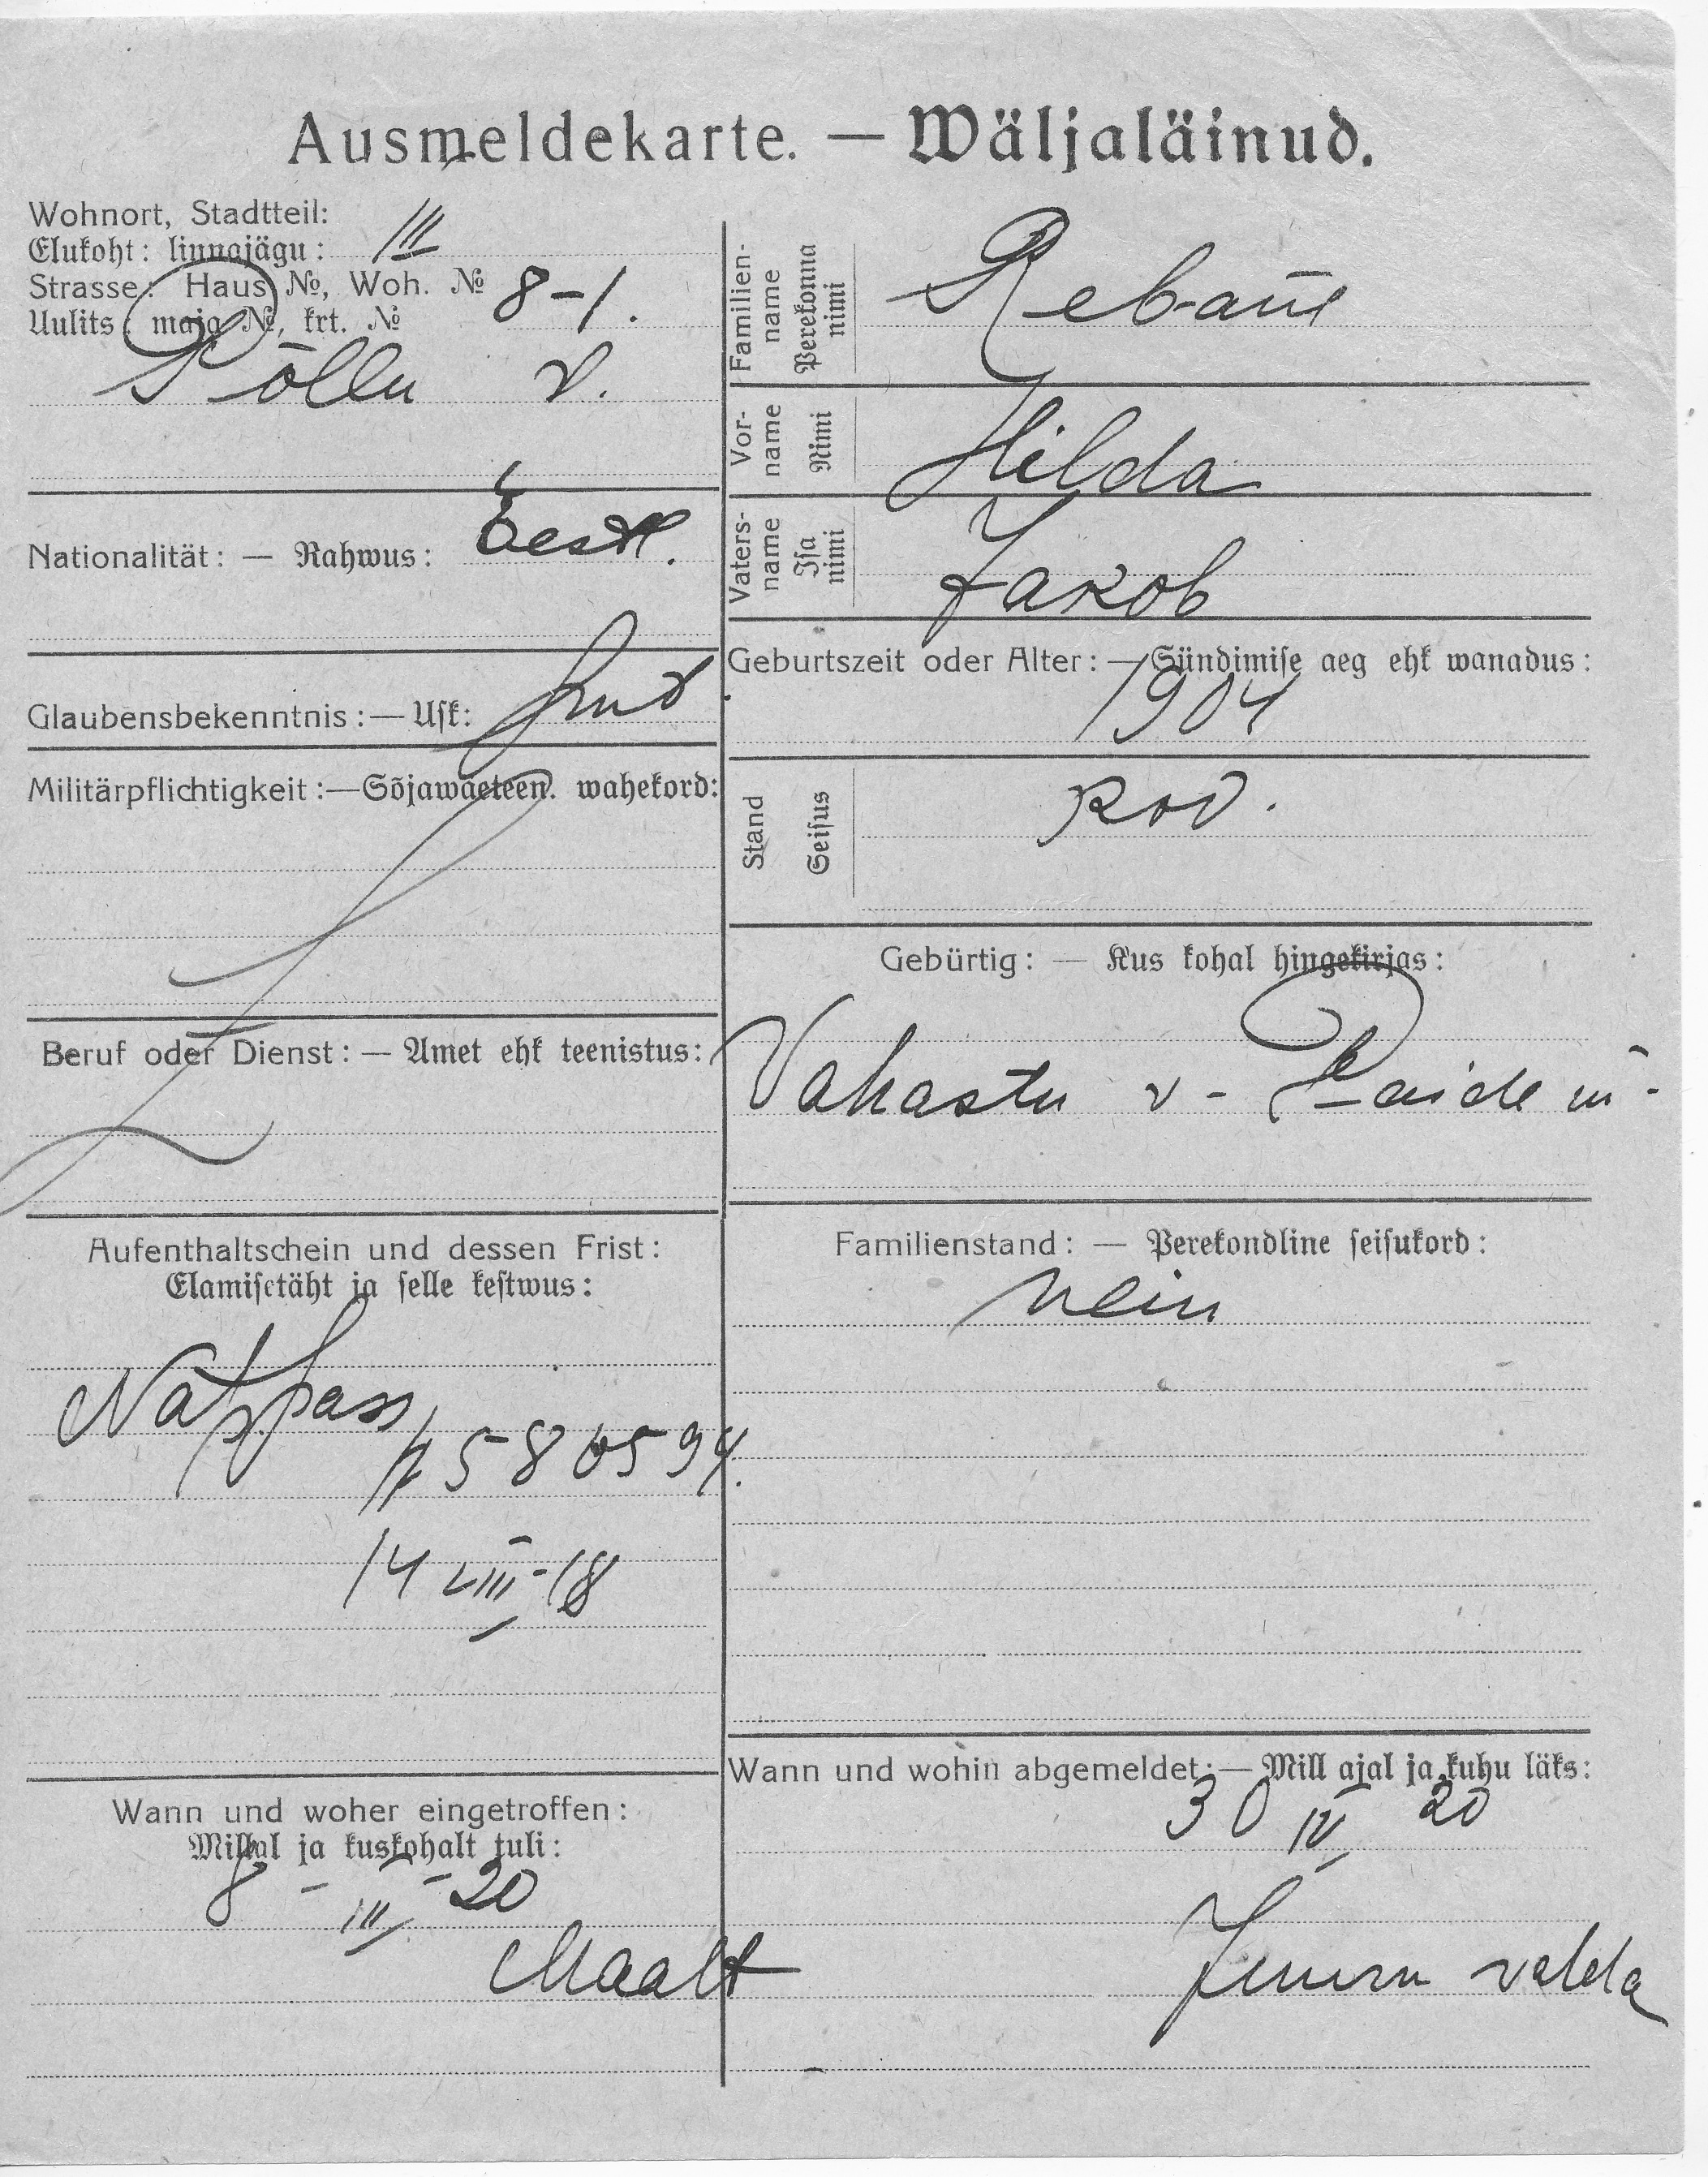 Ausmeldekarte. — Wäljaläinud.
Wohnort, Stadtteil:
Elukoht: linnajägu: III
Strasse: Haus №, Woh. № 8-1.
Uulits: maja №, krt. №
Põllu v.
Nationalität: — Rahwus: Eestl.
Glaubensbekenntnis: — Usk:
Militärpflichtigkeit: — Sõjawäeteen. wahekord:
Beruf oder Dienst: — Amet ehk teenistus:
Aufenthaltschein und dessen Frist:
Elamisetäht ja selle kestwus:
Natpass
№ 586594.
14 VIII-18
Wann und woher eingetroffen:
Millal ja kuskohalt tuli:
8 - III - 20
Maalt
Familien-
name
Perekonna
nimi
Rebane
Vor-
name
Nimi
Hilda
Vaters-
name
Isa
nimi
Jakob
Geburtszeit oder Alter: — Sündimise aeg ehk wanadus:
1904
Stand
Seisus
Kod.
Gebürtig: — Kus kohal hingekirjas:
Vahastu v- Paide m-
Familienstand: — Perekondline seisukord:
Nein
Wann und wohin abgemeldet: — Mill ajal ja kuhu läks:
30 IV 20
valda